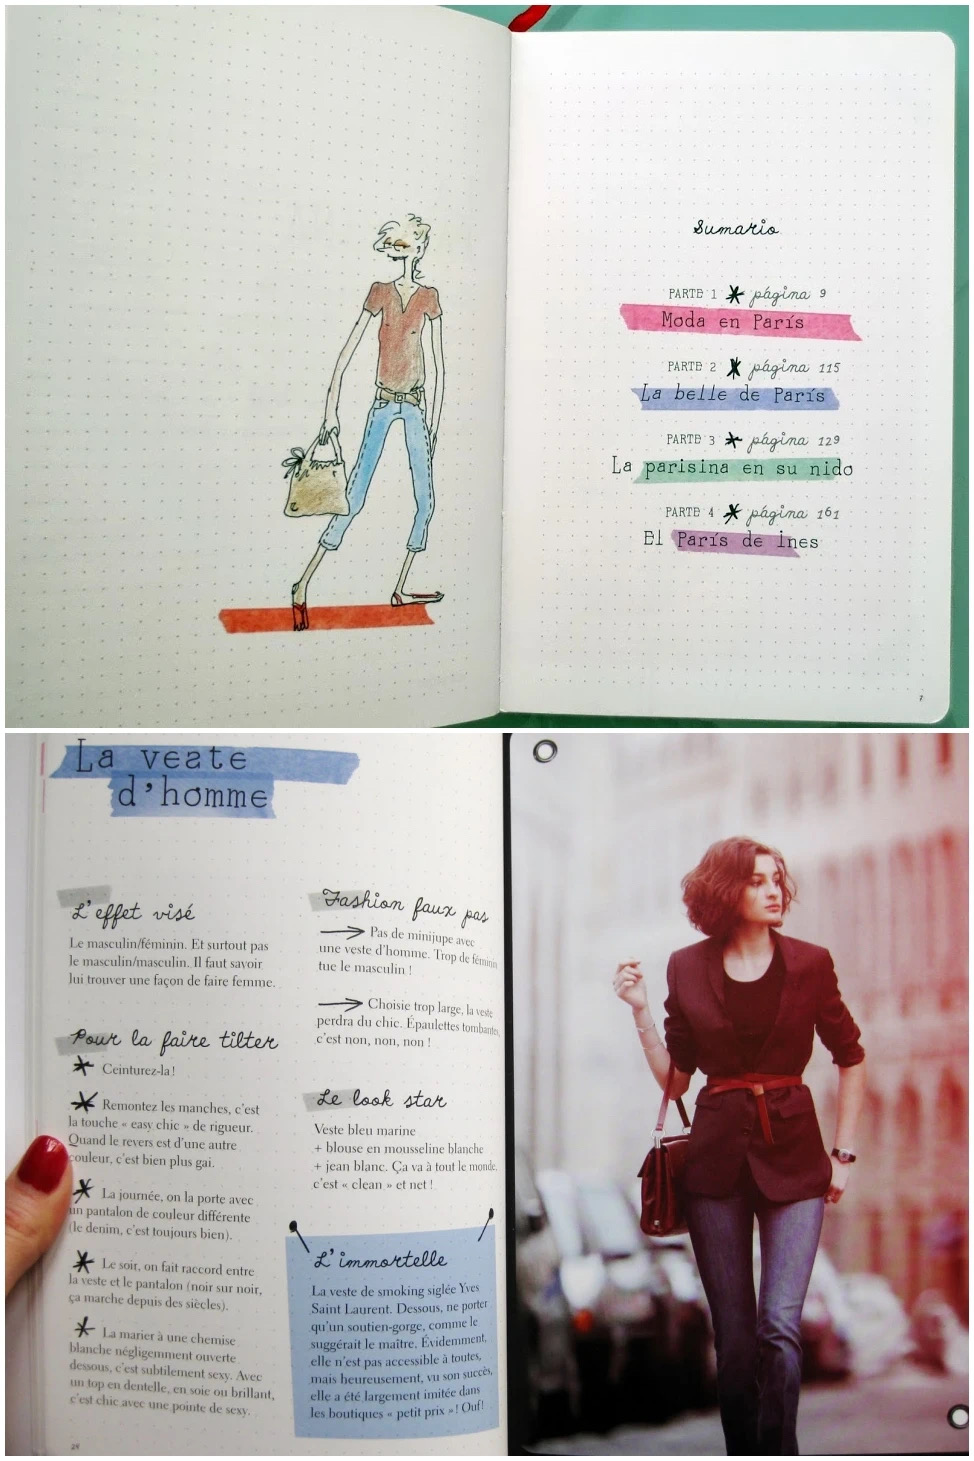 Sumario
PARTE 1 * página 9
Moda en París
PARTE 2 * página 115
La belle de París
PARTE 3 * página 129
La parisina en su nido
PARTE 4 * página 161
El París de Ines
7
La veste
d'homme
L'effet visé
Le masculin/féminin. Et surtout pas
le masculin/masculin. Il faut savoir
lui trouver une façon de faire femme.
Pour la faire tilter
* Ceinturez-la !
* Remontez les manches, c'est
la touche « easy chic » de rigueur.
Quand le revers est d'une autre
couleur, c'est bien plus gai.
* La journée, on la porte avec
un pantalon de couleur différente
(le denim, c'est toujours bien).
* Le soir, on fait raccord entre
la veste et le pantalon (noir sur noir,
ça marche depuis des siècles).
* La marier à une chemise
blanche négligemment ouverte
dessous, c'est subtilement sexy. Avec
un top en dentelle, en soie ou brillant,
c'est chic avec une pointe de sexy.
Fashion faux pas
→ Pas de minijupe avec
une veste d'homme. Trop de féminin
tue le masculin !
→ Choisie trop large, la veste
perdra du chic. Épaulettes tombantes,
c'est non, non, non !
Le look star
Veste bleu marine
+ blouse en mousseline blanche
+ jean blanc. Ça va à tout le monde,
c'est « clean » et net !
L'immortelle
La veste de smoking siglée Yves
Saint Laurent. Dessous, ne porter
qu'un soutien-gorge, comme le
suggérait le maître. Évidemment,
elle n'est pas accessible à toutes,
mais heureusement, vu son succès,
elle a été largement imitée dans
les boutiques « petit prix » ! Ouf !